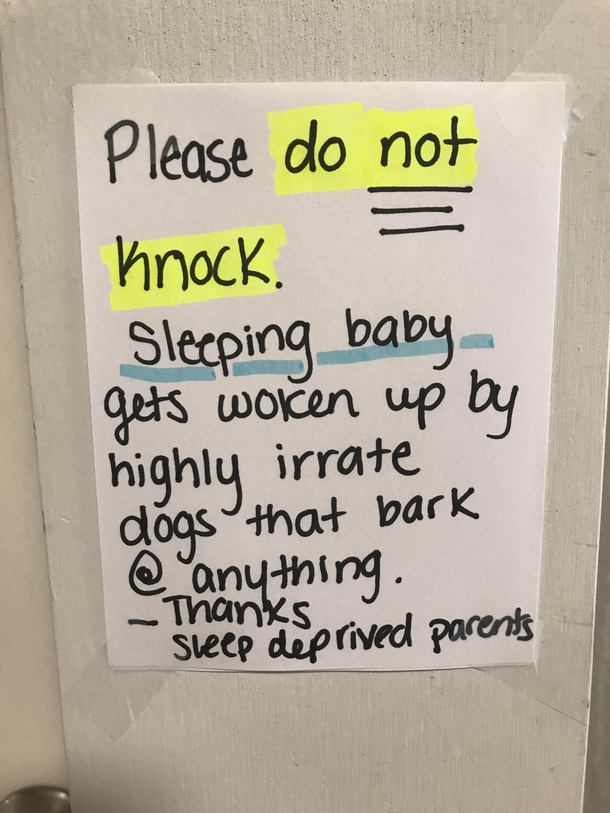 Please do not
knock.
Sleeping baby
gets woken up by
highly irrate
dogs that bark
@ anything.
- Thanks
sleep deprived parents